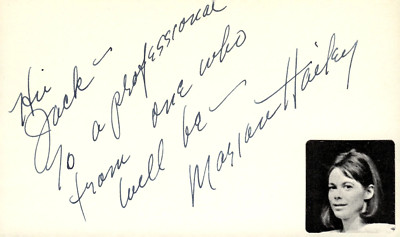 Hi
Jack –
To a professional
from one who
will be –
Marian Hailey